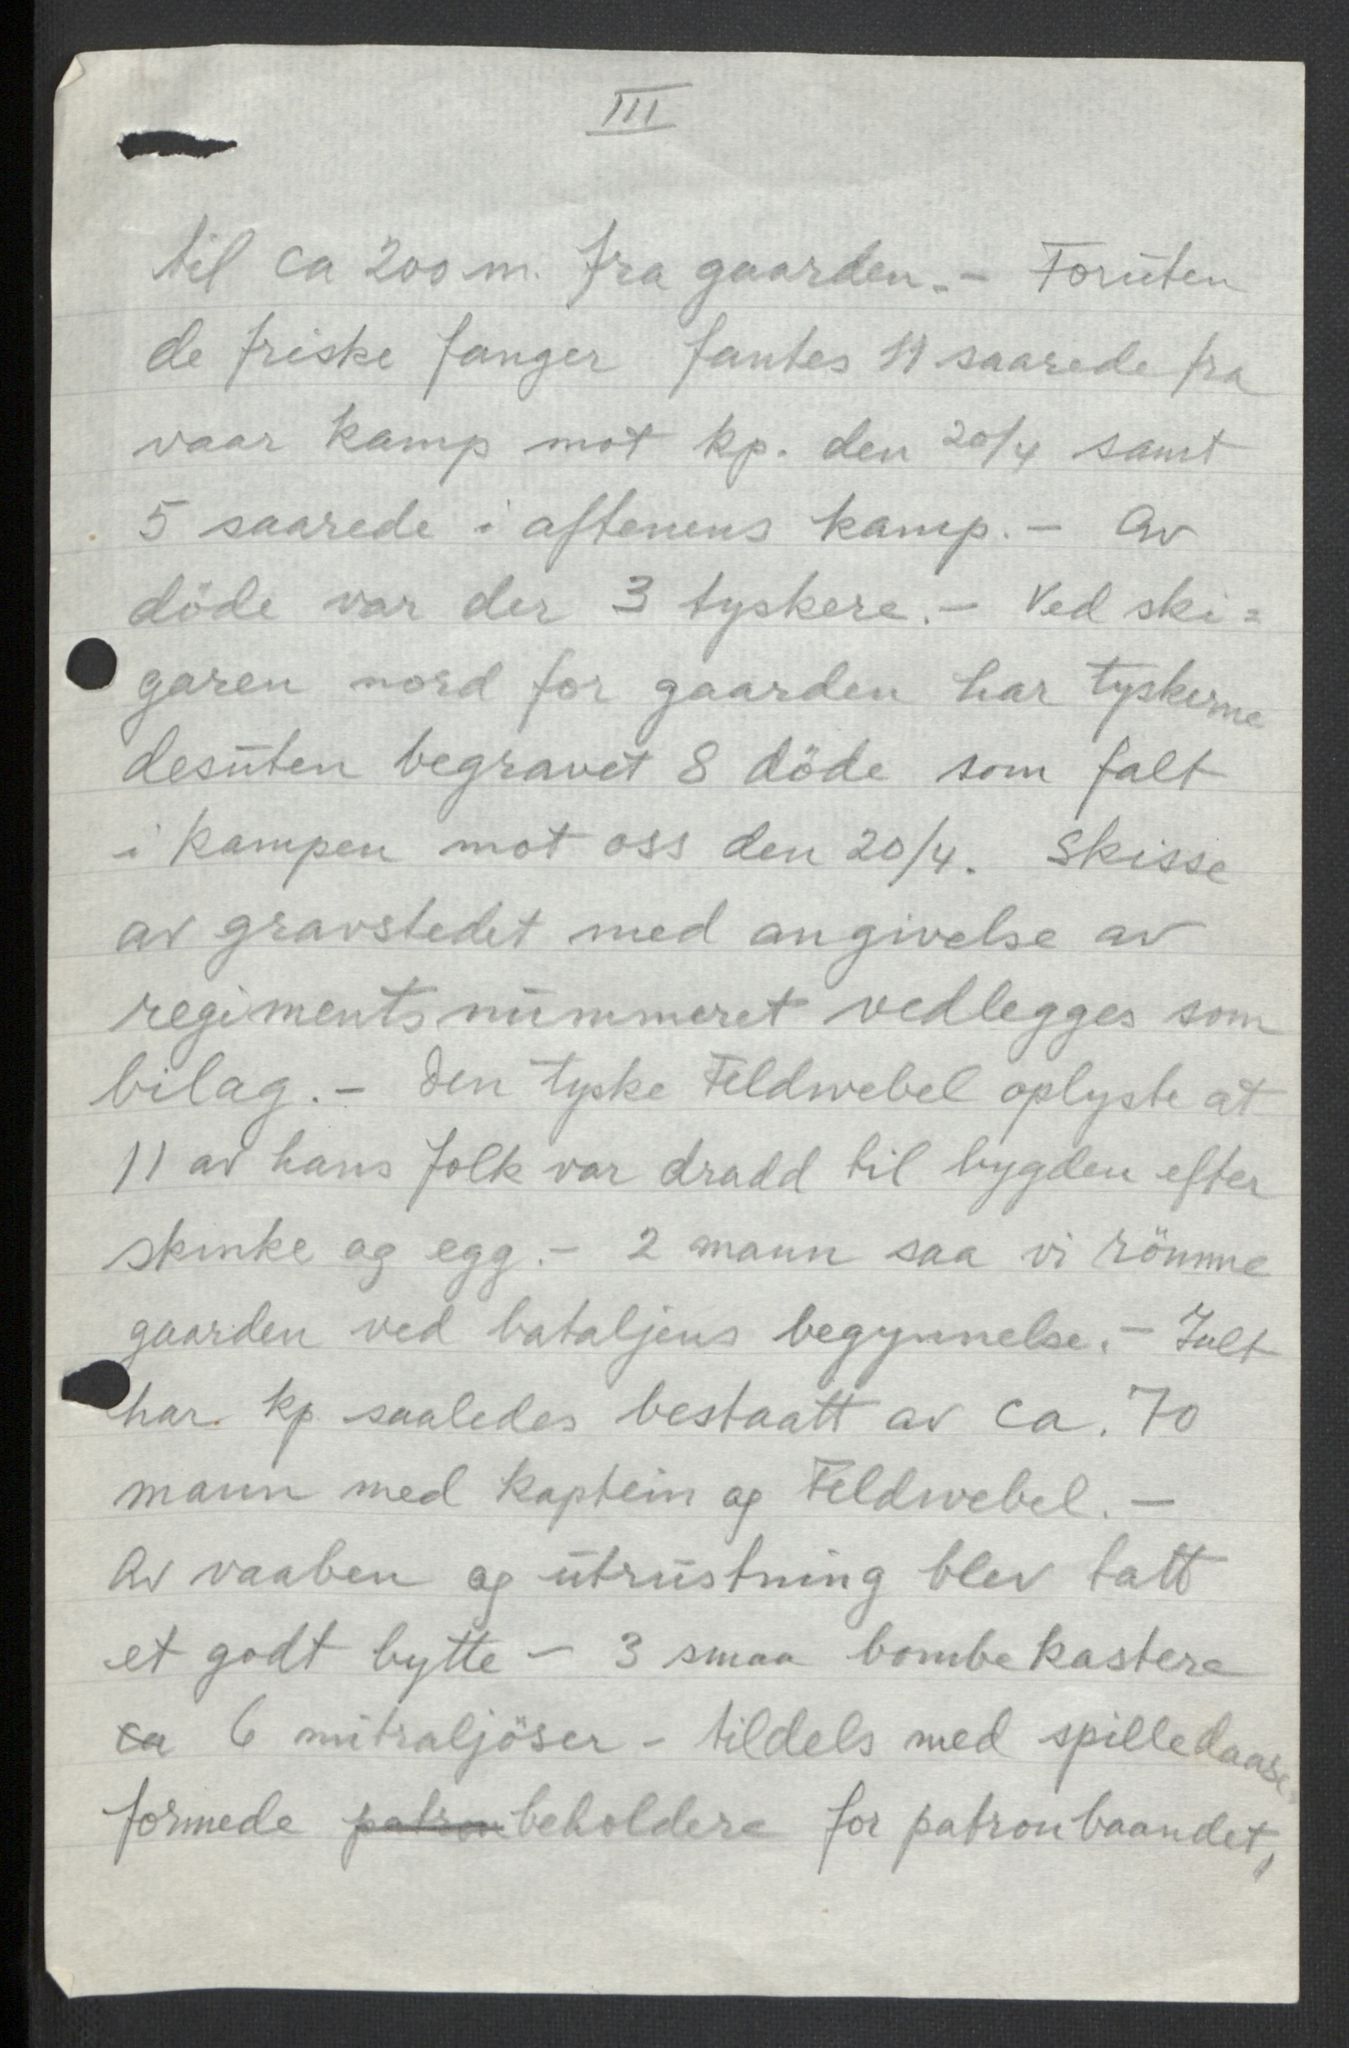 III
til ca 200 m. fra gaarden. - Foruten
de friske fanger fantes 11 saarede fra
vaar kamp mot kp. den 20/4 samt
5 saarede i aftenens kamp. - Av
döde var der 3 tyskere. - Ved ski=
garen nord for gaarden har tyskerne
desuten begravet 8 döde som falt
i kampen mot oss den 20/4. Skisse
av gravstedet med angivelse av
regimentsnummeret vedlegges som
bilag. - Den tyske Feldwebel oplyste at
11 av hans folk var dradd til bygden efter
skinke og egg. - 2 mann saa vi römme
gaarden ved bataljens begynnelse. - Ialt
har kp saaledes bestaatt av ca. 70
mann med kaptein og Feldwebel. -
Av vaaben og utrustning blev tatt
et godt bytte - 3 smaa bombekastere
ca 6 mitraljöser - tildels med spilledaase-
formede patronbeholdere for patronbaandet,